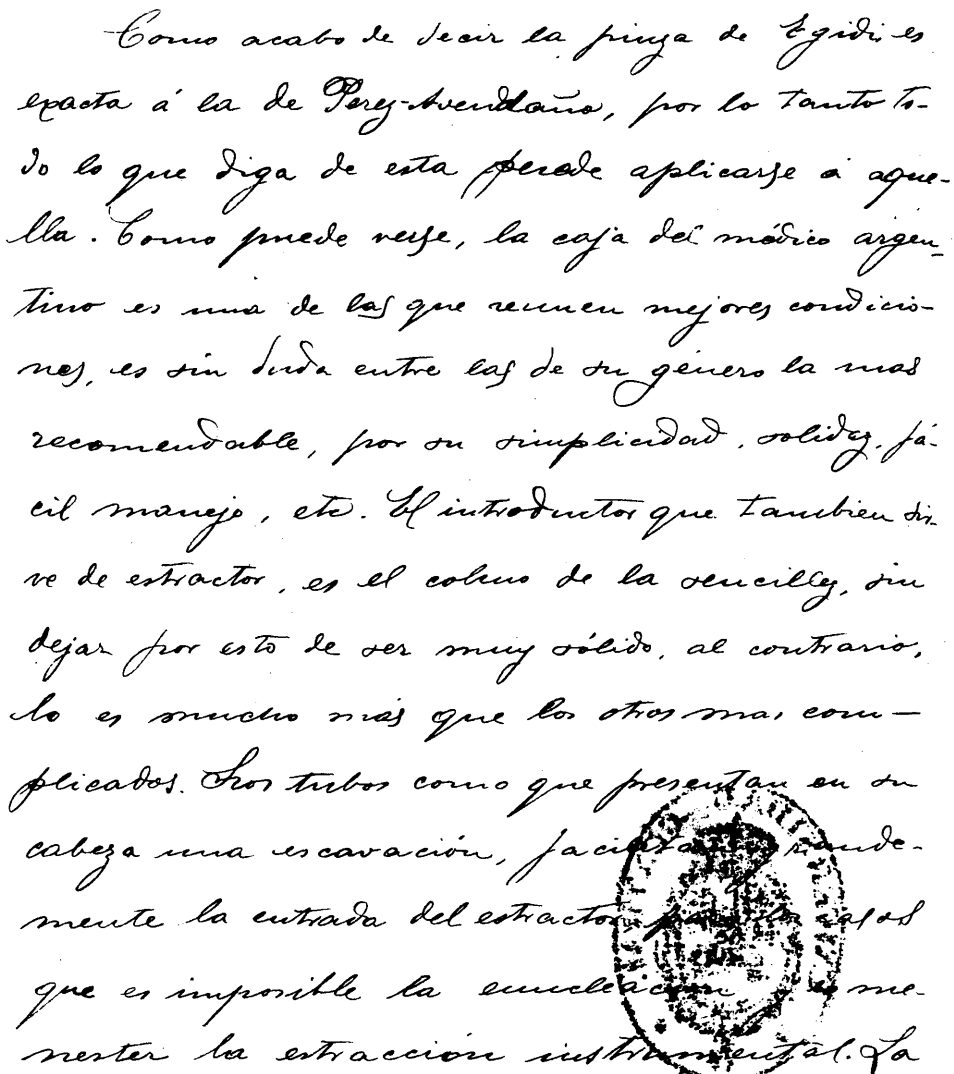 Como acabo de decir la pinza de Egidi es
exacta á la de Perez-Avendaño, por lo tanto to-
do lo que diga de esta puede aplicarse á aque-
lla. Como puede verse, la caja del médico argen-
tino es una de las que reunen mejores condicio-
nes, es sin duda entre las de su género la mas
recomendable, por su simplicidad, solidez, fá-
cil manejo, etc. El introductor que tambien sir-
ve de estractor, es el colmo de la sencillez, sin
dejar por esto de ser muy sólido, al contrario,
lo es mucho más que los otros mas com-
plicados. Los tubos como que presentan en su
cabeza una escavación, facilita grande-
mente la entrada del estractor para los casos
que es imposible la enucleacion y es me-
nester la estracción instrumental. La